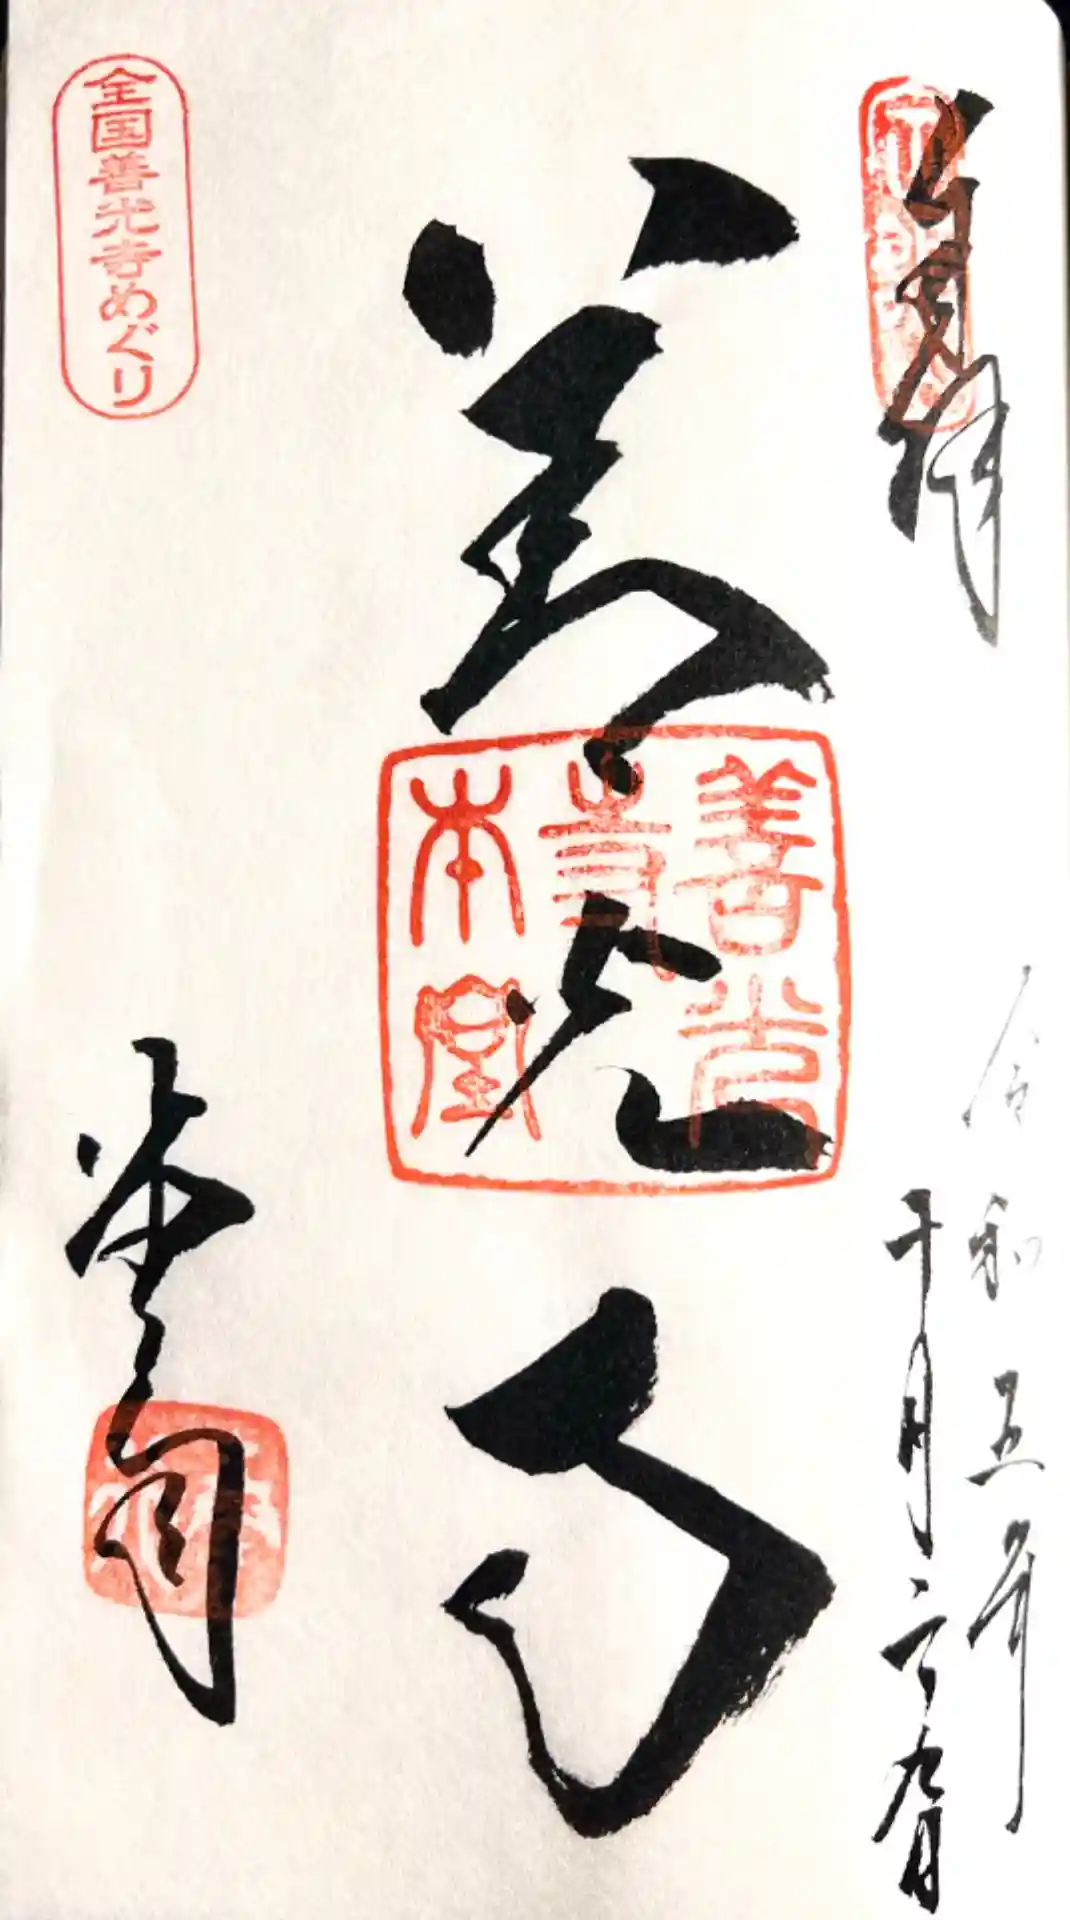 奉拝
令和五年
十月二十九日
善光寺
善光
寺
本堂
堂司
全国善光寺めぐり